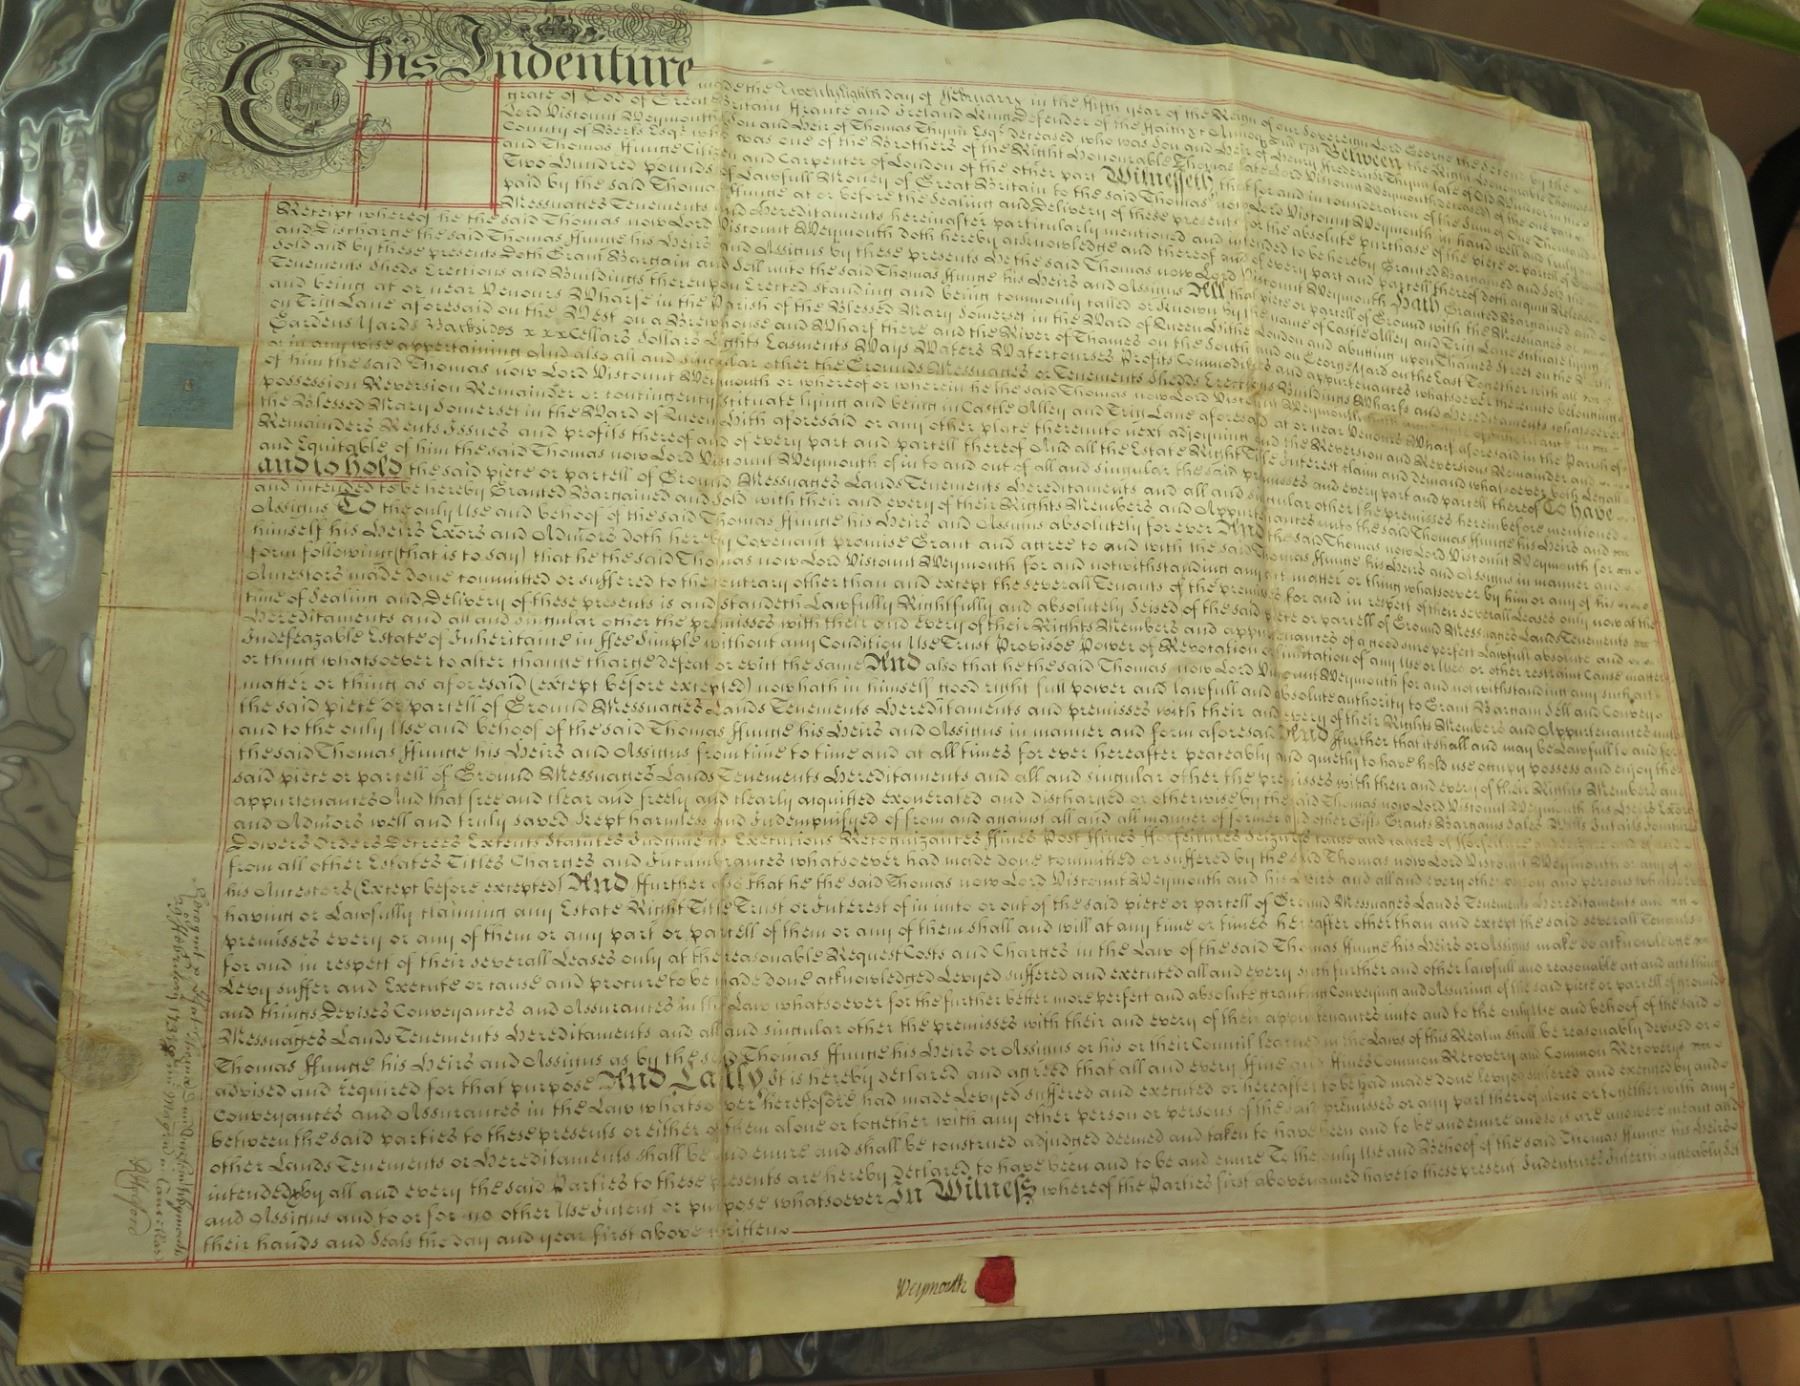 This Indenture made the Twentyeighth day of February in the fifth year of the Reign of our Sovereign Lord George the Second by the
grace of God of Great Britain ffrance and Ireland King Defender of the ffaith &c Annoq Between the Right Honourable Thomas
Lord Viscount Weymouth Son and Heir of Thomas Thynn Esqr. deceased who was Son and Heir of Henry Frederick Thynn late of Old Windsor in the
County of Berks Esqr. who was one of the Brothers of the Right Honourable Thomas late Lord Viscount Weymouth deceased of the one part
and Thomas ffunge Citizen and Carpenter of London of the other part Witnesseth that for and in consideration of the Sum of One Thousand
Two Hundred pounds of Lawfull Money of Great Britain to the said Thomas now Lord Viscount Weymouth in hand well and truly
paid by the said Thomas ffunge at or before the Sealing and Delivery of these presents for the absolute purchase of the piece or parcell of Ground
Messuages Tenements and Hereditaments hereinafter particularly mentioned and intended to be hereby Granted Bargained and Sold the
Receipt whereof he the said Thomas now Lord Viscount Weymouth doth hereby acknowledge and thereof and of every part and parcell thereof doth acquit Release
and Discharge the said Thomas ffunge his Heirs and Assigns by these presents He the said Thomas now Lord Viscount Weymouth Hath Granted Bargained and
Sold and by these presents Doth Grant Bargain and Sell unto the said Thomas ffunge his Heirs and Assigns All that piece or parcell of Ground with the Messuages or
Tenements Sheds Erections and Buildings thereupon Erected standing and being commonly called or known by the name of Castle Alley and Trig Lane situate lying
and being at or near Venours Wharfe in the Parish of the Blessed Mary Somerset in the Ward of Queen Hithe London and abutting upon Thames Street on the
on Trig Lane aforesaid on the West on a Brewhouse and Wharf there and the River of Thames on the South and on George Yard on the East Together with all
Gardens Yards Backsides x x x Cellars Sollars Lights Easments Ways Waters Watercourses Profits Commodities and appurtenances whatsoever thereunto belonging
or in any wise appertaining And also all and singular other the Grounds Messuages or Tenements Sheds Erections Buildings Wharfs and Hereditaments whatsoever
of him the said Thomas now Lord Viscount Weymouth or whereof or wherein he the said Thomas now Lord Viscount Weymouth
possession Reversion Remainder or contingency situate lying and being in Castle Alley and Trig Lane aforesaid at or near Venours Wharf aforesaid in the Parish of
the Blessed Mary Somerset in the Ward of Queen Hith aforesaid or any other place thereunto next adjoyning and the Reversion and Reversions Remainder and
Remainders Rents Issues and profits thereof and of every part and parcell thereof And all the Estate Right Title Interest claim and demand whatsoever both Legall
and Equitable of him the said Thomas now Lord Viscount Weymouth of in to and out of all and singular the said premisses and every part and parcell thereof To have
and to hold the said piece or parcell of Ground Messuages Lands Tenements Hereditaments and all and singular other the premisses hereinbefore mentioned
and intended to be hereby Granted Bargained and Sold with their and every of their Rights Members and Appurtenances unto the said Thomas ffunge his Heirs and
Assigns To the only Use and behoof of the said Thomas ffunge his Heirs and Assigns absolutely for ever And the said Thomas now Lord Viscount Weymouth for
himself his Heirs Exors and Admors doth hereby Covenant promise Grant and agree to and with the said Thomas ffunge his Heirs and Assigns in manner and
form following (that is to say) that he the said Thomas now Lord Viscount Weymouth for and notwithstanding any act matter or thing whatsoever by him or any of his
Ancestors made done committed or suffered to the contrary other than and except the severall Tenants of the premisses for and in respect of their severall Leases only now at the
time of Sealing and Delivery of these presents is and standeth Lawfully Rightfully and absolutely Seised of the said piece or parcell of Ground Messuages Lands Tenements
Hereditaments and all and singular other the premisses with their and every of their Rights Members and appurtenances of a good sure perfect Lawfull absolute and
Indefeazable Estate of Inheritance in ffee Simple without any Condition Use Trust Provisoe Power of Revocation or limitation of any Use or Uses or other restraint Cause matter
or thing whatsoever to alter change charge defeat or evict the same And also that he the said Thomas now Lord Viscount Weymouth for and notwithstanding any such act
matter or thing as aforesaid (except before excepted) now hath in himself good right full power and lawfull and absolute authority to Grant Bargain Sell and Convey
the said piece or parcell of Ground Messuages Lands Tenements Hereditaments and premisses with their and every of their Rights Members and Appurtenances unto
and to the only Use and behoof of the said Thomas ffunge his Heirs and Assigns in manner and form aforesaid And ffurther that it shall and may be Lawfull to and for
the said Thomas ffunge his Heirs and Assigns from time to time and at all times for ever hereafter peaceably and quietly to have hold use occupy possess and enjoy the
said piece or parcell of Ground Messuages Lands Tenements Hereditaments and all and singular other the premisses with their and every of their Rights Members and
appurtenances And that free and clear and freely and clearly acquitted exonerated and discharged or otherwise by the said Thomas now Lord Viscount Weymouth his Heirs Exors
and Admors well and truly saved kept harmless and Indempnifyed of from and against all and all manner of former and other Gifts Grants Bargains Sales Wills Intails Jointures
Dowers Orders Decrees Extents Statutes Judgments Executions Recognizances ffines Post ffines
from all other Estates Titles Charges and Incumbrances whatsoever had made done committed or suffered by the said Thomas now Lord Viscount Weymouth or any of
his Ancestors (Except before excepted) And ffurther also that he the said Thomas now Lord Viscount Weymouth and his Heirs and all and every other person and persons whatsoever
having or Lawfully claiming any Estate Right Title Trust or Interest of in unto or out of the said piece or parcell of Ground Messuages Lands Tenements Hereditaments and
premisses every or any of them or any part or parcell of them or any of them shall and will at any time or times hereafter other than and except the said severall Tenants
for and in respect of their severall Leases only at the reasonable Request Costs and Charges in the Law of the said Thomas ffunge his Heirs or Assigns make do acknowledge
Levy suffer and Execute or cause and procure to be made done acknowledged Levyed suffered and executed all and every such further and other lawfull and reasonable act and acts thing
and things Devises Conveyances and Assurances in the Law whatsoever for the further better more perfect and absolute granting Conveying and Assuring of the said piece or parcell of ground
Messuages Lands Tenements Hereditaments and all and singular other the premisses with their and every of their appurtenances unto and to the only Use and behoof of the said
Thomas ffunge his Heirs and Assigns as by the said Thomas ffunge his Heirs or Assigns or his or their Council learned in the Laws of this Realm shall be reasonably devised or
advised and required for that purpose And Lastly It is hereby declared and agreed that all and every ffine and ffines Common Recovery and Common Recoverys
Conveyances and Assurances in the Law whatsoever heretofore had made Levyed suffered and executed or hereafter to be had made done levyed suffered and executed by and
between the said parties to these presents or either of them alone or together with any other person or persons of the said premisses or any part thereof alone or together with any
other Lands Tenements or Hereditaments shall be and enure and shall be construed adjudged deemed and taken to have been and to be and enure and so is are and were meant and
intended by all and every the said Parties to these presents are hereby Declared to have been and to be and enure To the only Use and Behoof of the said Thomas ffunge his Heirs
and Assigns and to or for no other Use Intent or purpose whatsoever In Witness whereof the Parties first abovenamed have to these present Indentures Interchangeably Set
their hands and Seals the Day and year first above written
Weymouth